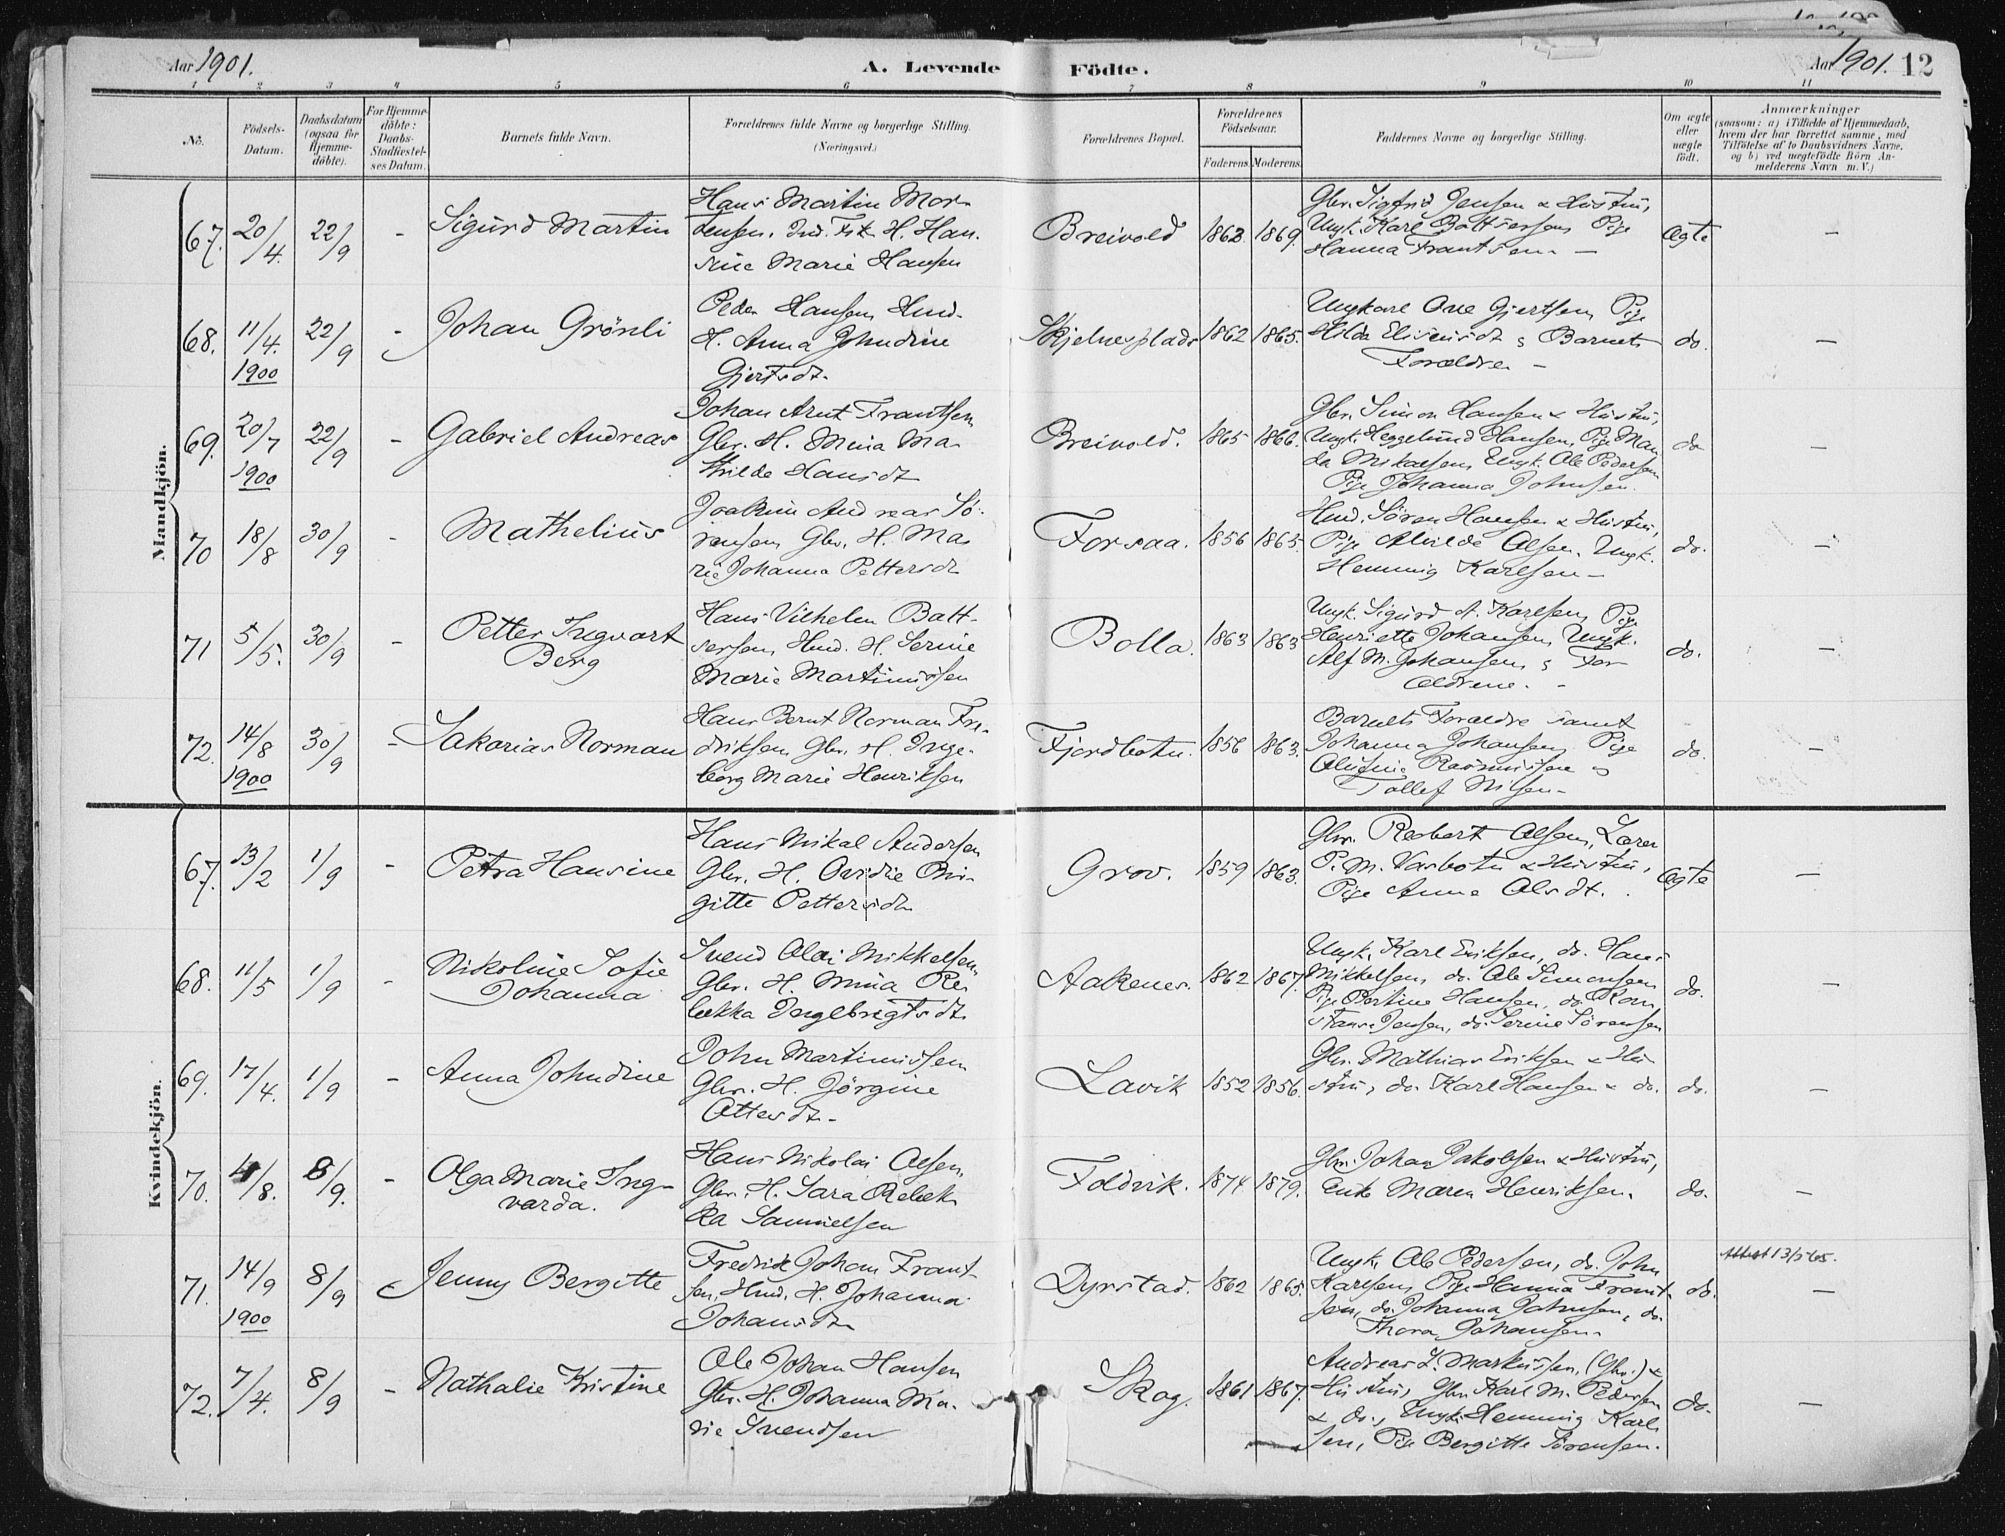 Aar 1901.
A. Levende Födte.
Aar 1901. 12
1 2 3 4 5 6 7 8 9 10 11
No.
Födsels-
Datum.
Daabsdatum
(ogsaa for
Hjemme-
döbte).
For Hjemme-
döbte:
Daabs-
Stadfæstel-
ses Datum.
Barnets fulde Navn.
Forældrenes fulde Navne og borgerlige Stilling.
(Næringsvei.)
Forældrenes Bopæl.
Forældrenes
Födselsaar.
Faderens. Moderens.
Faddernes Navne og borgerlige Stilling.
Om ægte
eller
uægte
födt.
Anmærkninger
(saasom: a) i Tilfælde af Hjemmedaab,
hvem der har forrettet samme, med
Tilföielse af to Daabsvidners Navne,
og b) ved uægtefödte Börn An-
melderens Navn m. V.)
Mandkjön.
67. 20/4. 22/9 - Sigurd Martin
Hans Martin Mor-
tensen. Ind. Fisk. H. Han-
sine Marie Hansen
Breivold 1862. 1869.
Gbr. Sigfrid Jensen & Hustru,
Ungk. Karl Baltsersen Pige
Hanna Frantsen. -
Ægte -
68. 11/4. 1900 22/9 - Johan Grönli
Peder Hansen Hmd.
H. Anna Johndine
Gjertsdt.
Skjelnesplads 1862 1865.
Ungkarl Ove Gjertsen, Pige
Hilda Eliseusdt & Barnets
Forældre -
do. -
69. 20/7 1900 22/9 - Gabriel Andreas
Johan Arnt Frantsen
Gbr. H. Mina Ma-
thilde Hansdt
Breivold. 1865 1866.
Gbr. Simon Hansen & Hustru,
Ungk. Heggelund Hansen, Pige Man
da Mikalsen, Ungk. Ole Pedersen
Pige Johanna Johnsen.
do -
70 18/8 30/9 - Mathelius
Joakim Andreas Sö-
rensen Gbr. H. Ma-
rie Johanna Pettersdt
Forsaa. 1856 1863.
Hmd. Sören Hansen & Hustru,
Pige Alvilde Olsen. Ungk.
Hemmig Karlsen -
do. -
71 5/5. 30/9 - Petter Ingvart
Berg
Hans Vilhelm Balt-
sersen Hmd. H. Serine
Marie Martinussen
Bolla. 1863 1863
Ungk. Sigurd A. Karlsen, Pige
Henriette Johansen, Ungk.
Alf M. Johansen, & For-
ældrene. -
do. -
72. 14/8 1900 30/9 - Sakarias Norman
Hans Bernt Norman Fre-
driksen Gbr. H. Inge-
borg Marie Henriksen
Fjordbotn. 1856 1863.
Barnets Forældre samt
Johanna Johansen, Pige
Olufine Rasmussen &
Tollef Nilsen -
do. -
Kvindekjön.
67. 13/2 1/9 - Petra Hansine
Hans Mikal Andersen
Gbr. H. Ovidie Bir-
gitte Pettersdt
Grov. 1859 1863.
Gbr. Reobert Olsen, Lærer
P. M. Vasbotn & Hustru,
Pige Anne Olsdt.
Ægte -
68. 11/5 1/9 - Nikoline Sofie
Johanna
Svend Olai Mikkelsen
Gbr. H. Mina Re-
bekka Ingebrigtsdt.
Aakenes. 1862 1867.
Ungk. Karl Eriksen, do. Hans
Mikkelsen, do. Ole Simonsen
Pige Bertine Hansen, do. Kon
stanse Jensen, do. Serine Sörensen
do. -
69. 17/4. 1/9 - Anna Johndine
John Martinussen
Gbr. H. Jörgine
Ottersdt. -
Lavik 1852 1856.
Gbr. Mathias Eriksen & Hu-
stru, do. Karl Hansen & do.
do. -
70. 4/8. 8/9. - Olga Marie Ing-
varda.
Hans Nikolai Olsen,
Gbr. H. Sara Rebek-
ka Samuelsen
Foldvik. 1874 1879.
Gbr. Johan Jakobsen & Hustru,
Enke Maren Henriksen.
do. -
71. 14/9 1900 8/9 - Jenny Bergitte
Fredrik Johan Frant-
sen, Hmd. H. Johanna
Johansdt.
Dyrstad. 1862 1865.
Ungk. Ole Pedersen, do. John
Karlsen, Pige Hanna Frant-
sen, do. Johanna Johnsen, do.
Thora Johansen.
do. Attest 13/5 65. -
72. 7/4. 8/9 - Nathalie Kristine
Ole Johan Hansen
Gbr. H. Johanna Ma-
rie Svendsen
Skog. 1861 1867.
Andreas L. Markussen, (Gbr.) &
Hustru, Gbr. Karl M. Pedersen
& do., Ungk. Hemmig Karl
sen, Pige Bergitte Sörensen.
do. -